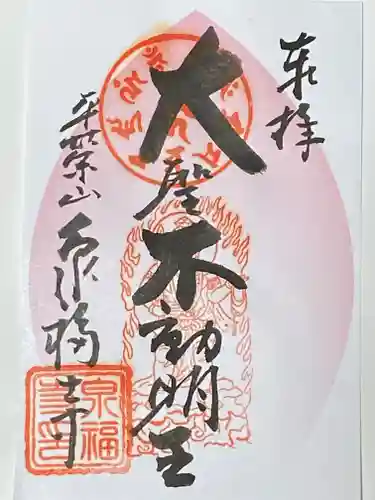 奉拝
大聖不動明王
平栄山 泉福寺
泉福寺印